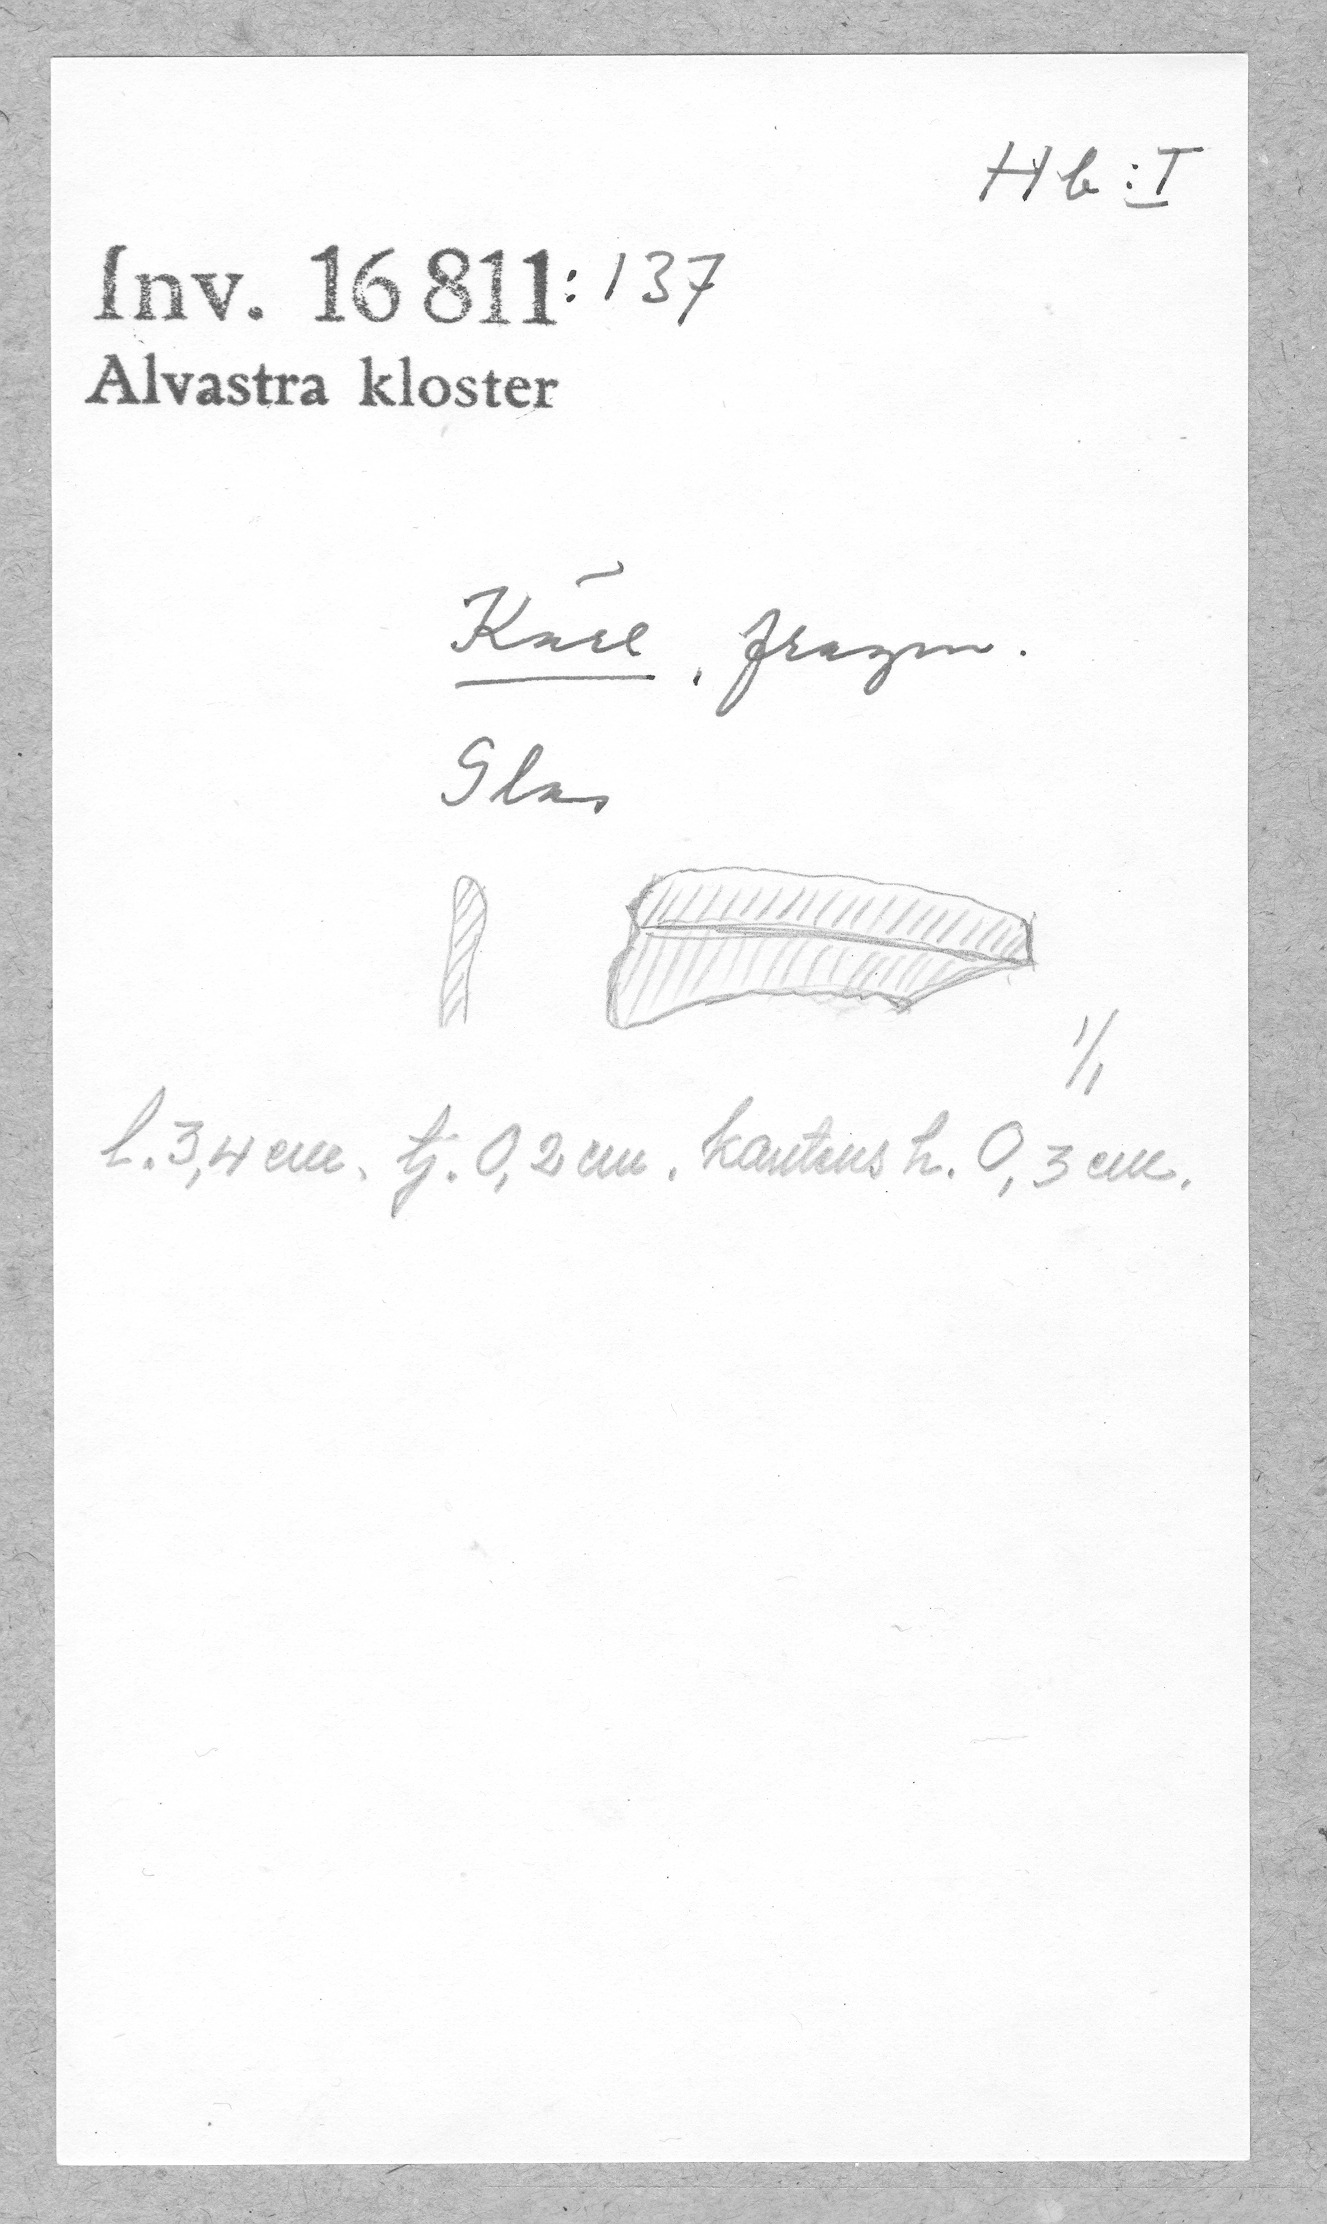 Hb:I
Inv. 16 811:137
Alvastra kloster
Kärl, fragm.
Glas
1/1
l. 3,4 cm. tj. 0,2 cm. kantens h. 0,3 cm.